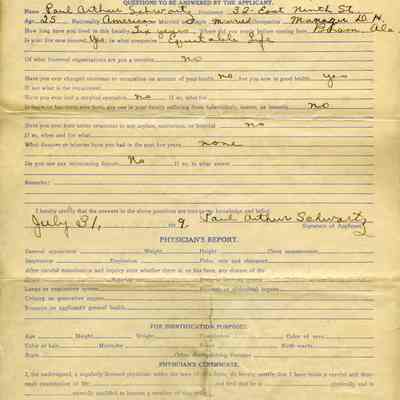 QUESTIONS TO BE ANSWERED BY THE APPLICANT.
Name Paul Arthur Schwartz Residence 32 East Ninth St.
Age 25 Nationality American Married or Single married Occupation Manager D. H.
How long have you lived in this locality Six years Where did you reside before coming here Ala.
Is your life now insured Yes In what companies Equitable Life
Of what fraternal organizations are you a member no
Have you ever changed residence or occupation on account of your health no Are you now in good health yes
If not what is the impairment
Have you ever had a surgical operation no If so, what for
no
Have you ever been under treatment in any asylum, sanitarium, or hospital no
If so, when and for what
What diseases or injuries have you had in the past five years none
Do you use any intoxicating liquors No If so, to what extent
Remarks:
I hereby certify that the answers to the above questions are true to my knowledge and belief.
July 31, 9 Paul Arthur Schwartz
Signature of Applicant
PHYSICIAN'S REPORT.
General appearance Weight Height Chest measurement
Inspiration Expiration Pulse, rate and character
After careful examination and inquiry state whether there is or has been, any disease of the
Lungs or respiratory system Stomach or abdominal organs
Urinary or generative organs
Remarks on applicant's general health
FOR IDENTIFICATION PURPOSES:
Age Height Weight Complexion Color of eyes
Color of hair Mustache Beard Birth marks
Scars Other distinguishing features
PHYSICIAN'S CERTIFICATE.
I, the undersigned, a regularly licensed physician under the laws of the State, do hereby certify that I have made a careful and thorough
examination of Mr. and find that he is physically and is
mentally qualified to become a member of this order.